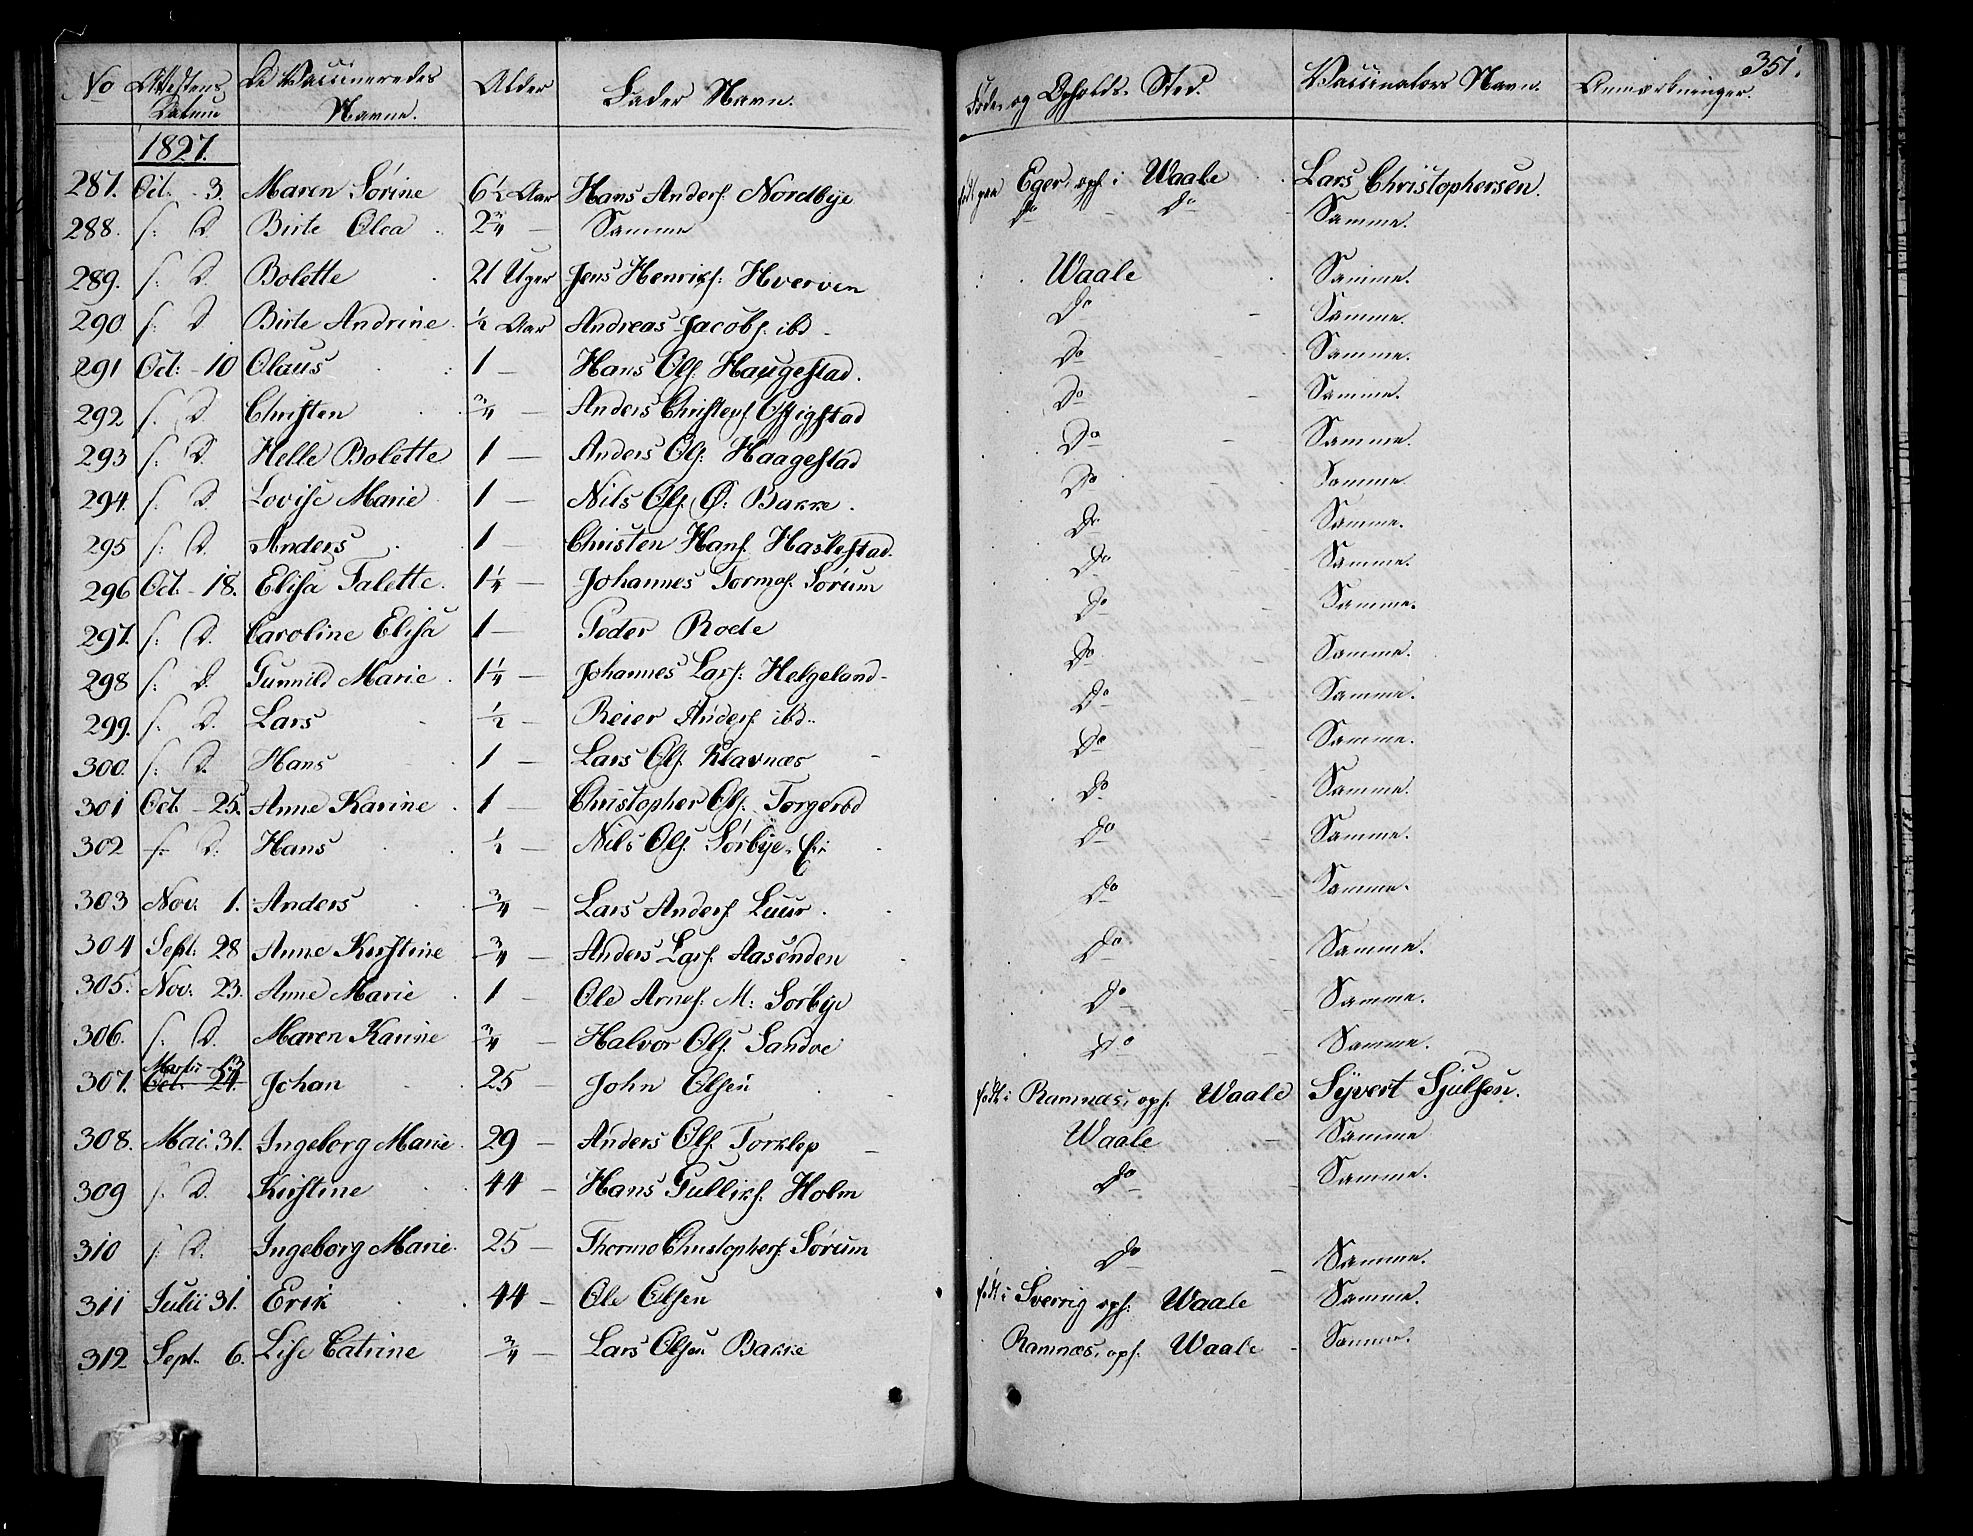 351.
No Attestens Datum De Vaccineredes Navne. Alder Fader Navn. Føde og Opholds Sted. Vaccinators Navn. Anmærkninger.
1827.
287. Oct. - 3. Maren Sørine 6½ Aar Hans Anders: Nordbye født paa Eger, oph: i Waale Lars Christophersen.
288. s: D. Birte Olea 2¾ — Samme Do Do Samme.
289. s: D. Bolette 21 Uger Jens Henriks: Hverven Waale Samme.
290 s: D Birte Andrine ½ Aar Andreas Jacobs: ibd - Do Samme.
291 Oct: - 10 Olaus 1 — Hans Ols: Haugestad. Do Samme.
292 s: D. Christen ¾ — Anders Christoph Do Samme.
293 s: D. Helle Bolette 1 — Anders Ols: Haagestad Do Samme.
294. s: D. Lovise Marie 1 — Nils Ols: Ø: Bakke. Do Samme.
295 s: D. Anders 1 — Christen Hans: Haslestad. Do Samme.
296 Oct. - 18. Elisa Talette. 1¼ — Johannes Tormos: Sørum Do Samme.
297. s: D. Caroline Elisa 1 — Peder Roele Do Samme.
298 s: D. Gunnild Marie. 1¼ — Johannes Lars: Helgeland - Do Samme.
299. s: D. Lars ½ — Reier Anders: ibd.. Do Samme.
300. s: D. Hans 1 — Lars Ols: Klavnæs Do Samme.
301 Oct. - 25. Anne Karine. 1 — Christopher Ols: Torgerød Do Samme.
302 s: D: Hans ½ — Nils Ols: Sørbye. Do Samme.
303 Nov. 1. Anders ¾ — Lars Anders: Luur. Do Samme.
304 Sept: 28 Anne Kirstine ¾ — Anders Lars: Aasenden Do Samme.
305. Nov: 23. Anne Marie. 1 — Ole Arnes: M: Sørbye Do Samme.
306. s: D. Maren Karine ¾ — Halvor Ols: Sandve Do Samme.
Martii 13
307. Oct: 24. Johan 25 — John Olsen født i Ramnæs, oph: Waale Syvert Sjulsen.
308. Mai: 31. Ingeborg Marie. 29 — Anders Ols: Torklep Waale Samme
309 s: D. Kirstine 44 — Hans Gulliks: Holm Do Samme.
310 s: D. Ingeborg Marie. 25 — Thormo Christophers: Sørum Do Samme.
311 Julii 31. Erik 44 — Ole Olsen født i Sverrig oph: Waale Samme.
312 Sept. 6. Lise Catrine ¾ — Lars Olsen Bakke Ramnæs, oph: Waale Samme.